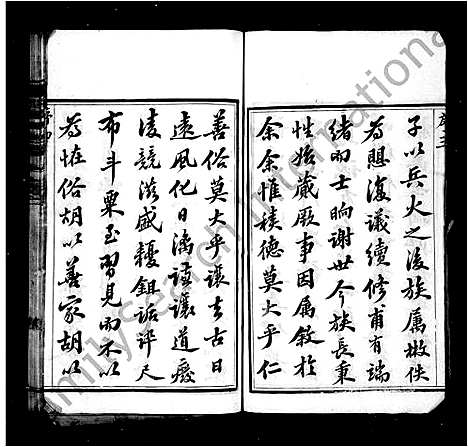 子以兵火之後族属散佚
為興復議續修甫有端
緒而士晌謝世今族長秉
性始蕆厥事因属敘於
余余惟積德莫大乎仁
善俗莫大乎讓去古日
遠風化日漓謹讓道廢
凌競滋盛耰鉏詬誶尺
布斗粟至習見而不以
為怪俗胡以善家胡以
FamilySearch International